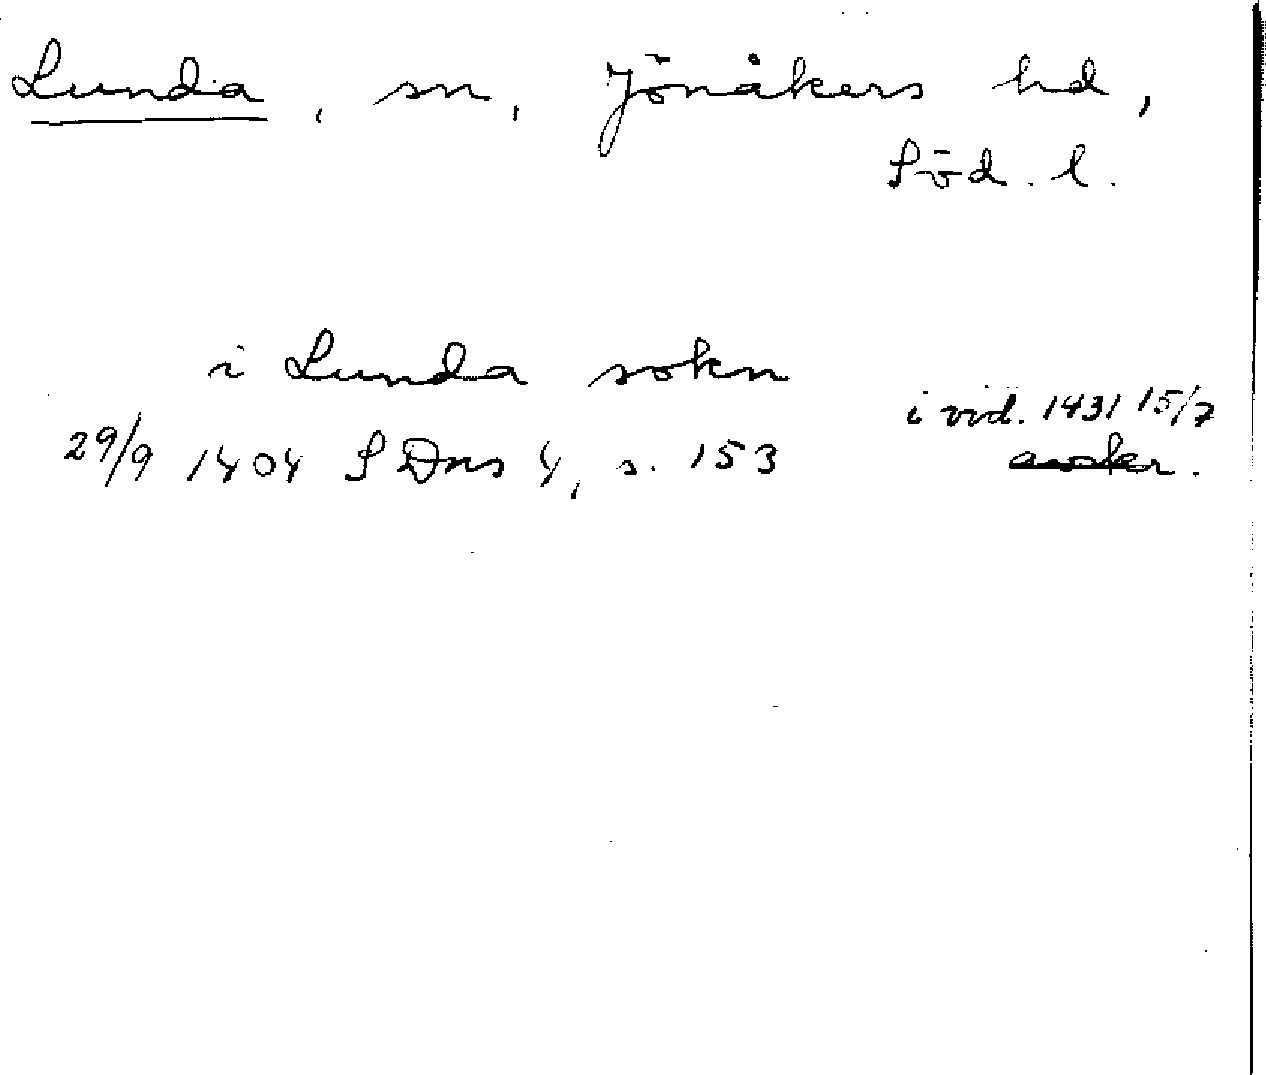 Lunda, sn, Jönåkers hd,
Söd. l.
i Lunda sokn
i vid. 1431 15/7
29/9 1404 SDns 4, s. 153 avskr.